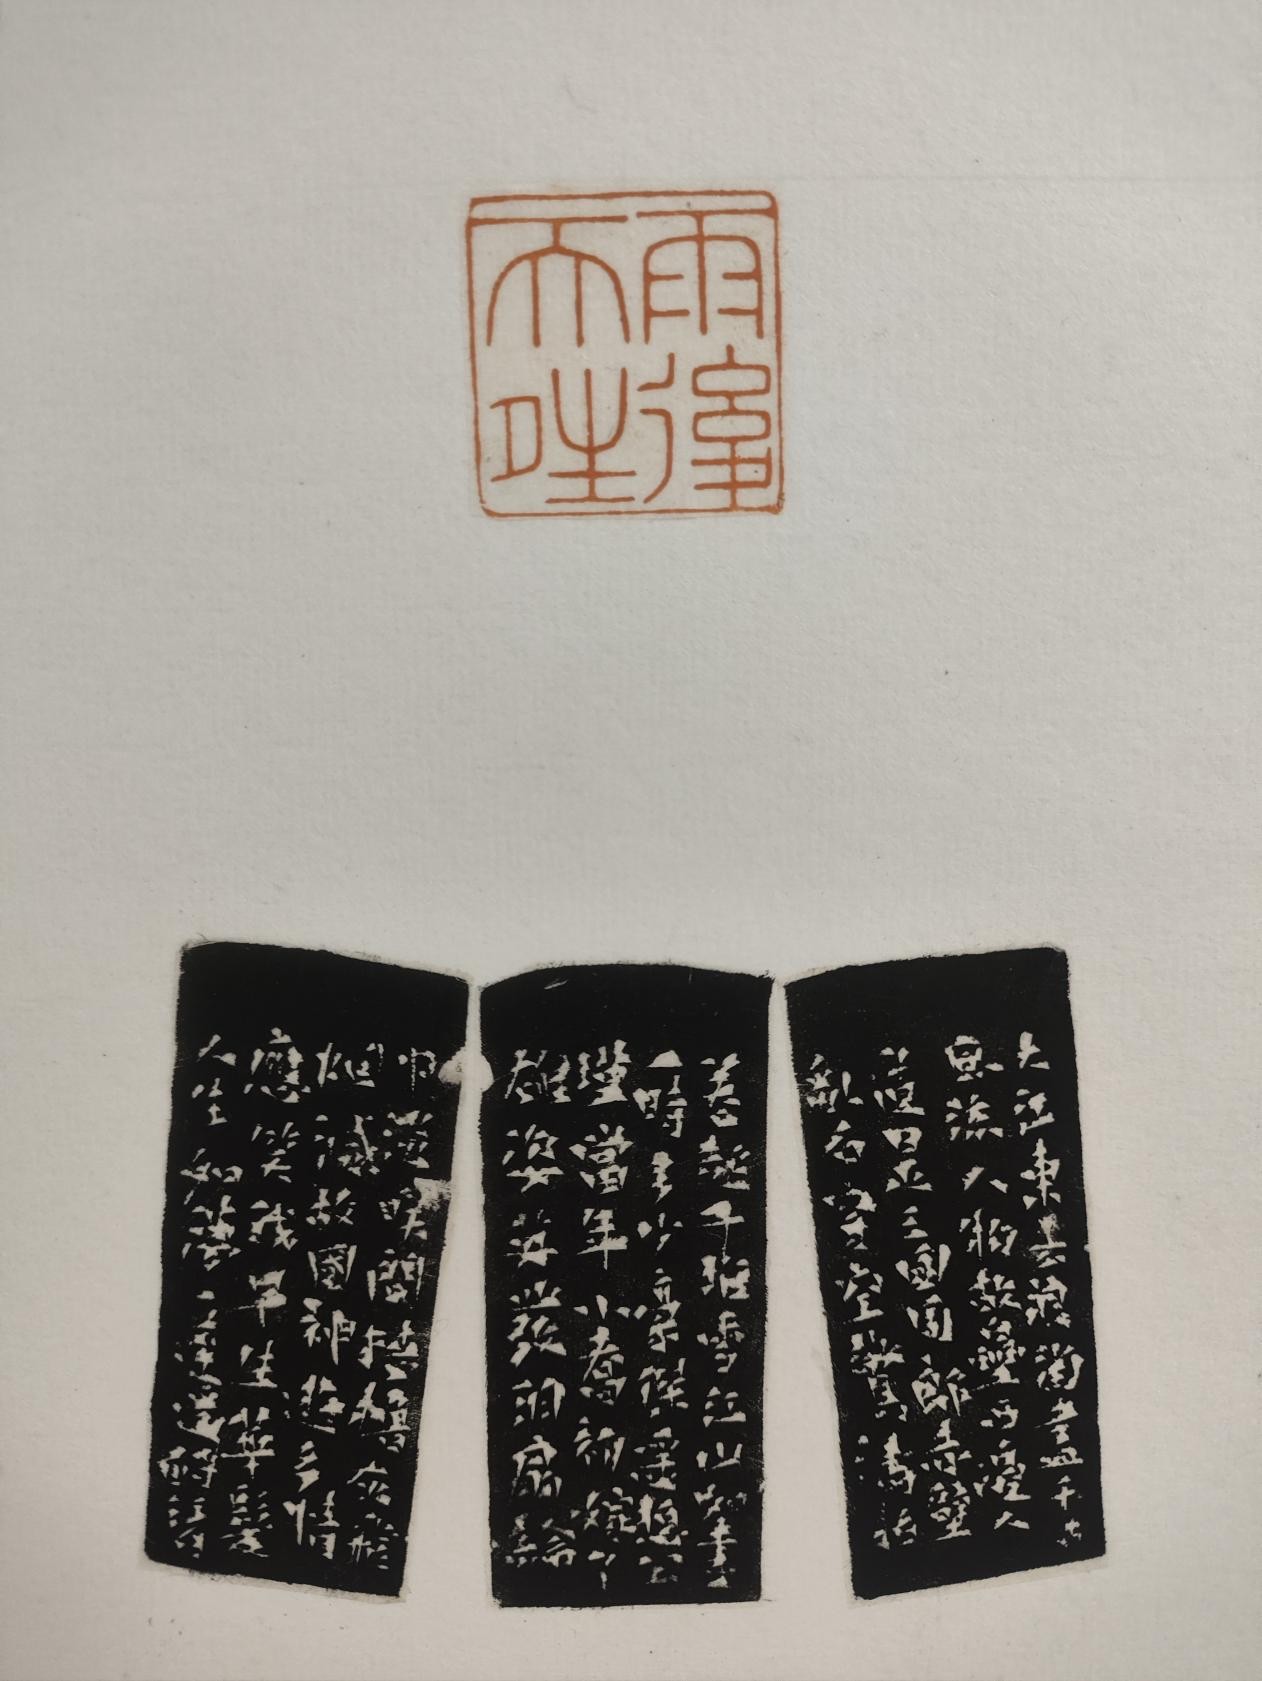 雨後
天夝
大江東去浪淘盡千古
風流人物故壘西邊人
道是三國周郎赤壁
亂石穿空驚濤拍
卷起千堆雪江山如畫
一時多少豪傑遙想公
瑾當年小喬初嫁了
雄姿英發羽扇綸
巾談笑間檣櫓灰飛
煙滅故國神遊多情
應笑我早生華髮
人生如夢一尊還酹江月